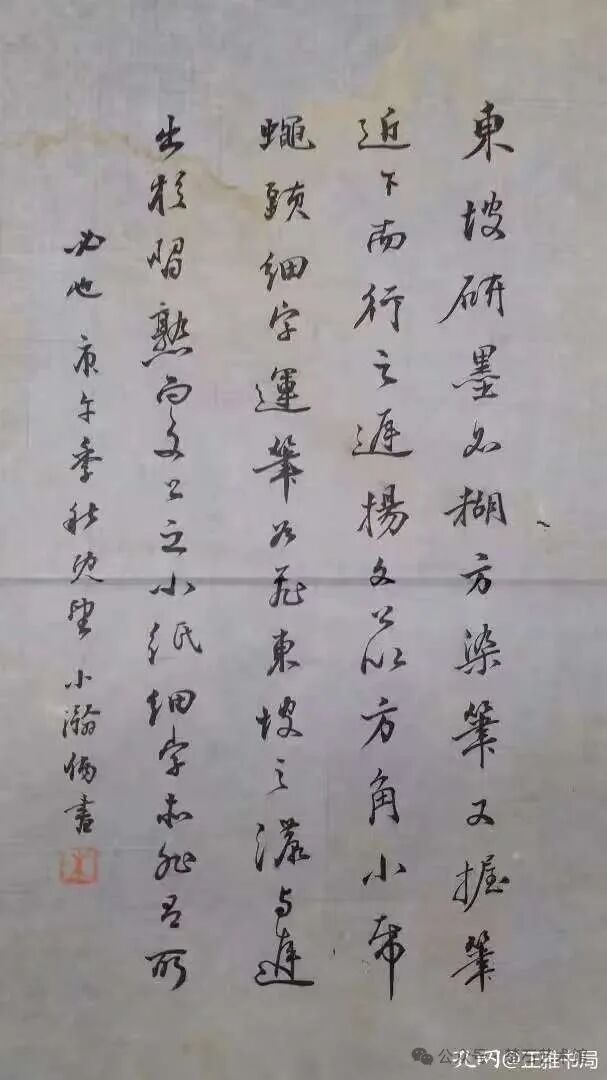 東坡研墨如糊方染筆又握筆
近下而行之遲楊文公以方角小帋
蠅頭細字運筆如飛東坡之濃与遲
出於習熟而文公之小紙細字亦非有所
必也 庚午季秋既望 小瀚炳書
公众号
孔网@正雅书局